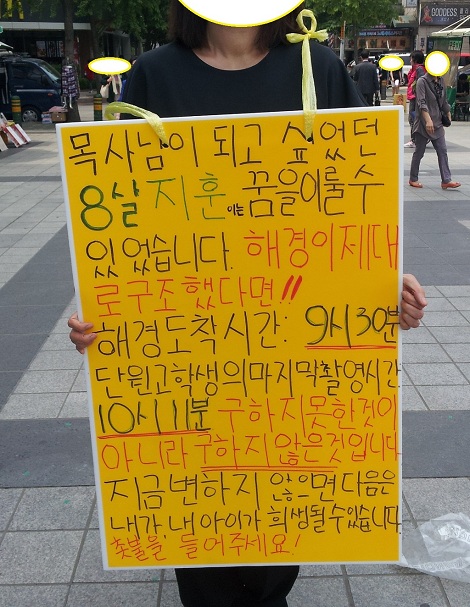 목사님이 되고 싶었던
8살 지훈이는 꿈을이룰수
있었습니다. 해경이제대
로구조했다면!!
해경도착시간: 9시30분
단원고학생의마지막촬영시간
10시11분 구하지못한것이
아니라구하지 않은것입니다
지금변하지 않으면다음은
내가, 내아이가 희생될수있습니다.
촛불을 들어주세요!
GODDESS